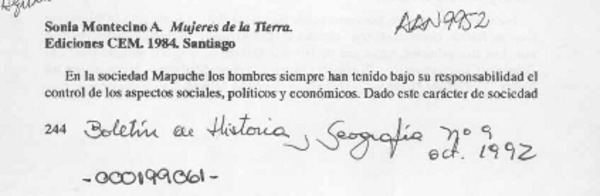 AAN9952
Sonia Montecino A. Mujeres de la Tierra.
Ediciones CEM. 1984. Santiago
En la sociedad Mapuche los hombres siempre han tenido bajo su responsabilidad el
control de los aspectos sociales, políticos y económicos. Dado este carácter de sociedad
244 Boletín de Historia y Geografía nº 9
oct. 1992
-000199061-